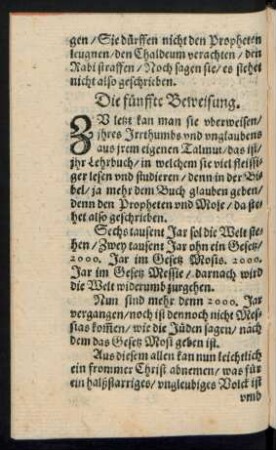 gen / Sie dürffen nicht den Propheten
leugnen / den Chaldeum verachten / den
Rabi straffen / Noch sagen sie / es stehet
nicht also geschrieben.
Die fünffte Beweisung.
ZV letzt kan man sie vberweisen /
jhres Irrthumbs vnd vnglaubens
aus jrem eigenen Talmut / das ist /
jhr Lehrbuch / in welchem sie viel fleissi-
ger lesen vnd studieren / denn in der Bi-
bel / ja mehr dem Buch glauben geben /
denn den Propheten vnd Mose / da ste-
het also geschrieben.
Sechs tausent Jar sol die Welt ste-
hen / Zwey tausent Jar ohn ein Gesetz /
2000. Jar im Gesetz Mosis. 2000.
Jar im Gesetz Messie / darnach wird
die Welt widerumb zurgehen.
Nun sind mehr denn 2000. Jar
vergangen / noch ist dennoch nicht Mes-
sias kom̃en / wie die Jüden sagen / nach
dem das Gesetz Mosi geben ist.
Aus diesem allen kan nun leichtlich
ein frommer Christ abnemen / was für
ein halßstarriges / vngleubiges Volck ist
vmd